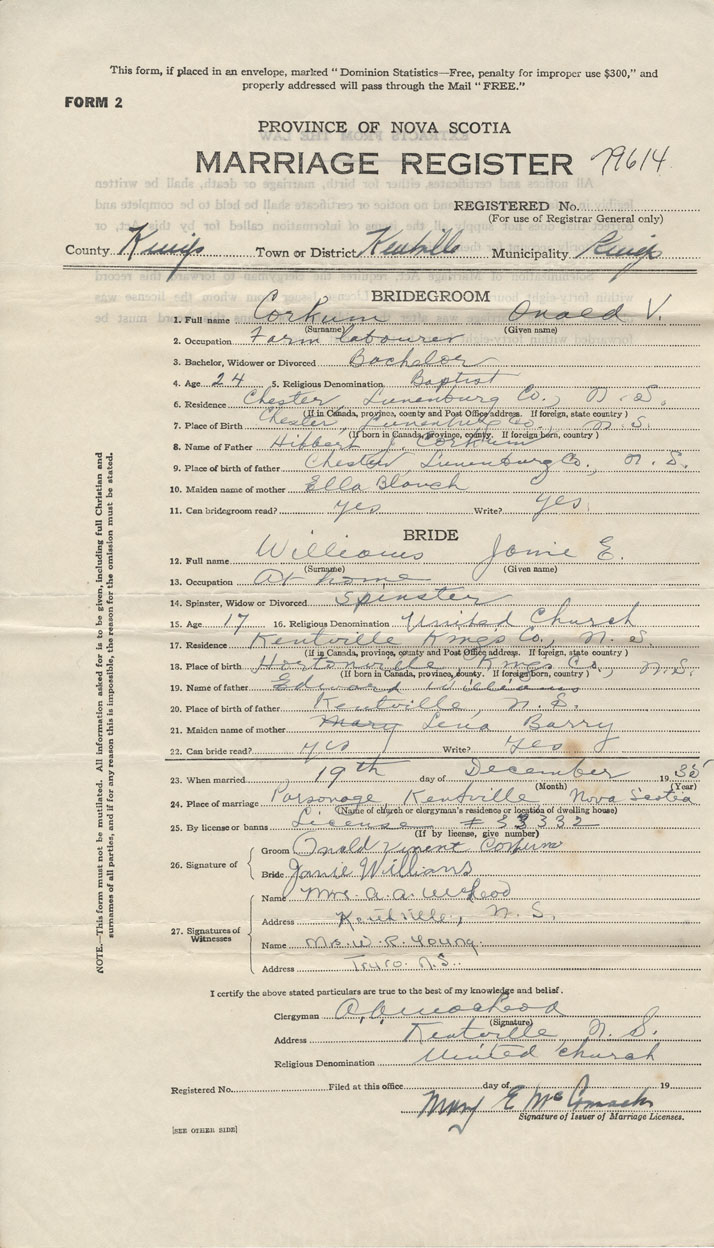 This form, if placed in an envelope, marked "Dominion Statistics—Free, penalty for improper use $300," and
properly addressed will pass through the Mail "FREE."
FORM 2
PROVINCE OF NOVA SCOTIA
MARRIAGE REGISTER 79614
REGISTERED No.
(For use of Registrar General only)
County Kings Town or District Kentville Municipality Kings
BRIDEGROOM
1. Full name Corkum Onald V.
(Surname) (Given name)
2. Occupation Farm labourer
3. Bachelor, Widower or Divorced Bachelor
4. Age 24 5. Religious Denomination Baptist
6. Residence Chester, Lunenburg Co., N.S.
(If in Canada, province, county and Post Office address. If foreign, state country)
7. Place of Birth Chester, Lunenburg Co., N.S.
(If born in Canada, province, county. If foreign born, country)
8. Name of Father Hibbert J. Corkum
9. Place of birth of father Chester, Lunenburg Co., N.S.
10. Maiden name of mother Ella Blouch
11. Can bridegroom read? yes Write? yes
BRIDE
12. Full name Williams Janie E.
(Surname) (Given name)
13. Occupation At home
14. Spinster, Widow or Divorced Spinster
15. Age 17 16. Religious Denomination United Church
17. Residence Kentville Kings Co., N.S.
(If in Canada, province, county and Post Office address. If foreign, state country)
18. Place of birth Hortonville Kings Co., N.S.
(If born in Canada, province, county. If foreign born, country)
19. Name of father Edward Williams
20. Place of birth of father Kentville, N.S.
21. Maiden name of mother Mary Lena Barry
22. Can bride read? yes Write? yes
23. When married 19th day of December 1935
(Month) (Year)
24. Place of marriage Parsonage Kentville Nova Scotia
(Name of church or clergyman's residence or location of dwelling house)
25. By license or banns License # 33332
(If by license, give number)
26. Signature of
Groom Onald Vincent Corkum
Bride Janie Williams
27. Signatures of Witnesses
Name Mrs. A. A. McLeod
Address Kentville, N.S.
Name Mrs. W. R. Young.
Address Truro. N.S.
I certify the above stated particulars are true to the best of my knowledge and belief.
Clergyman
(Signature)
Address Kentville N.S.
Religious Denomination United church
Registered No. Filed at this office day of 19
Mary E.
Signature of Issuer of Marriage Licenses.
[SEE OTHER SIDE]
NOTE.—This form must not be mutilated. All information asked for is to be given, including full Christian and
surnames of all parties, and if for any reason this is impossible, the reason for the omission must be stated.